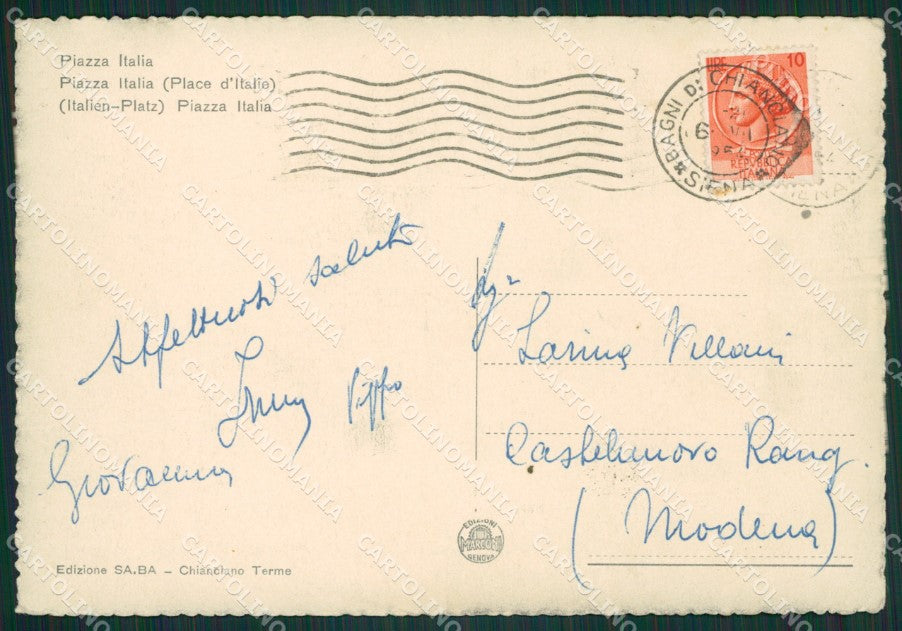 Piazza Italia
Piazza Italia (Place d'Italie)
(Italien-Platz) Piazza Italia
LIRE 10
BAGNI DI CHIANCIANO
*SIENA*
REPVBBLICA
ITALIANA
Affettuosi saluti
Pippo
Giovanna
Sig.ra
Villani
Castelnuovo Rang.
(Modena)
EDIZIONI
MARCONI
GENOVA
Edizione SA.BA - Chianciano Terme
CARTOLINOMANIA